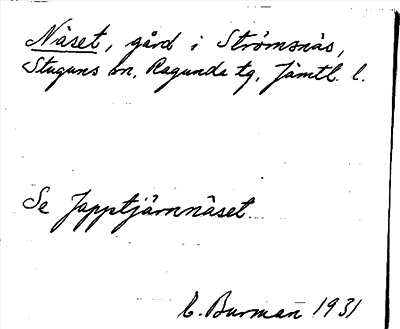 Näset, gård i Strömsnäs,
Stuguns sn, Ragunda tg, Jämtl. l.
Se Japptjärnnäset.
C. Burman 1931